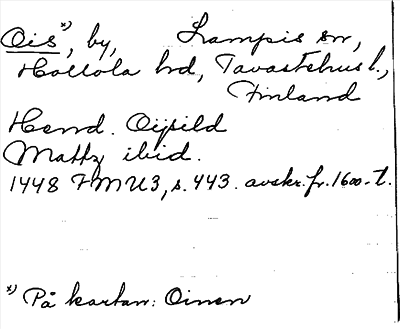 Ois x), by, Lampis sn,
Hollola hd, Tavastehus l.,
Finland
Hend. Oijsild
Mattz ibid.
1448 FMU3, s. 443. avskr. fr. 1600-t.
x) På kartan: Oinen